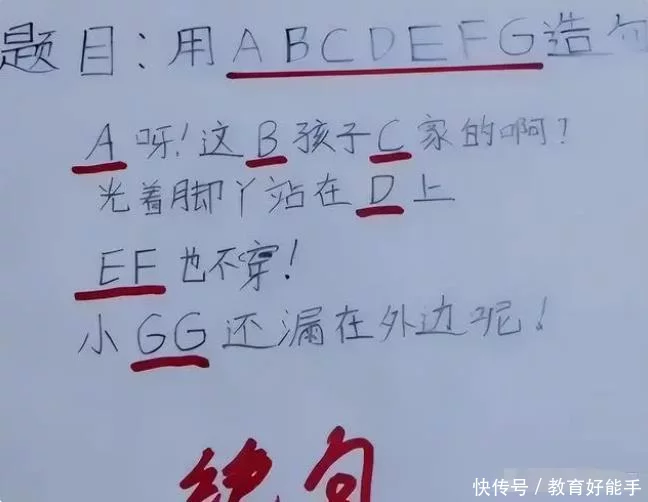 题目：用ABCDEFG造句
A呀！这B孩子C家的啊？
光着脚丫站在D上
EF也不穿！
小GG还漏在外边呢！
绝句
快传号／教育好能手